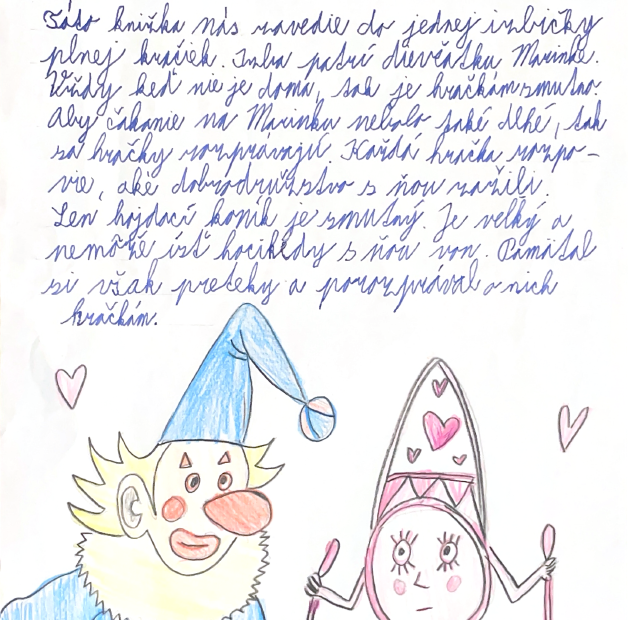 Táto knižka nás zavedie do jednej izbičky
plnej hračiek. Izba patrí dievčatku Marinke.
Vždy keď nie je doma, tak je hračkám smutno.
Aby čakanie na Marinku nebolo také dlhé, tak
sa hračky rozprávajú. Každá hračka rozpo-
vie, aké dobrodružstvo s ňou zažili.
Len hojdací koník je smutný. Je veľký a
nemôže ísť hocikedy s ňou von. Pamätal
si však preteky a porozprával o nich
hračkám.